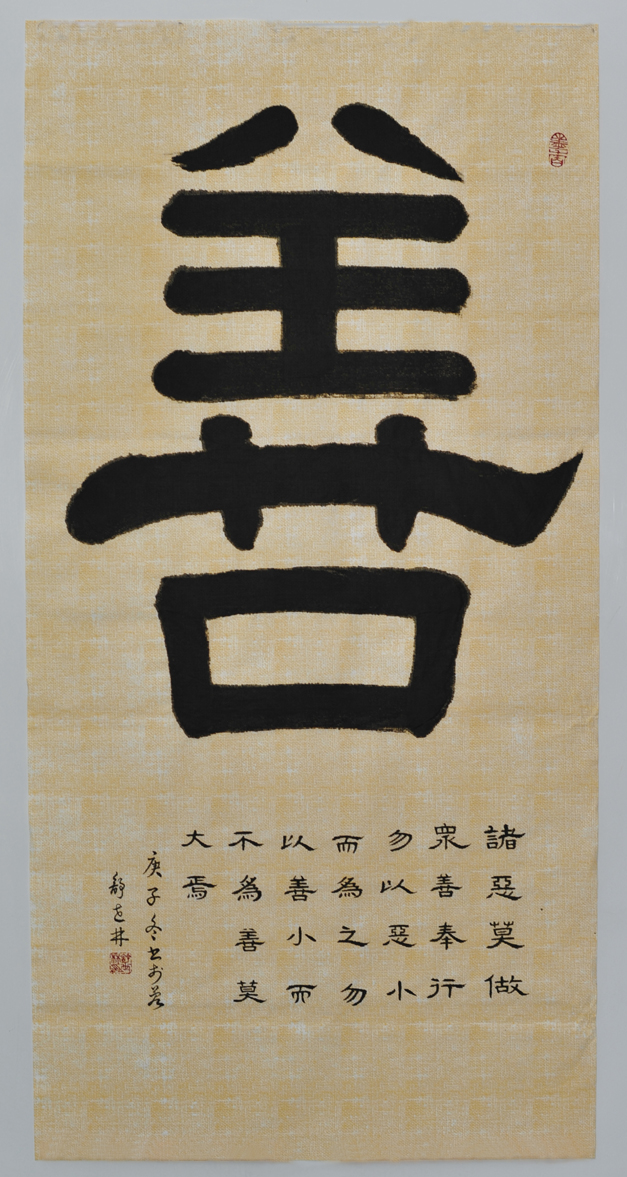 善
諸惡莫做
衆善奉行
勿以惡小
而為之勿
以善小而
不為善莫
大焉
庚子冬書於
靜